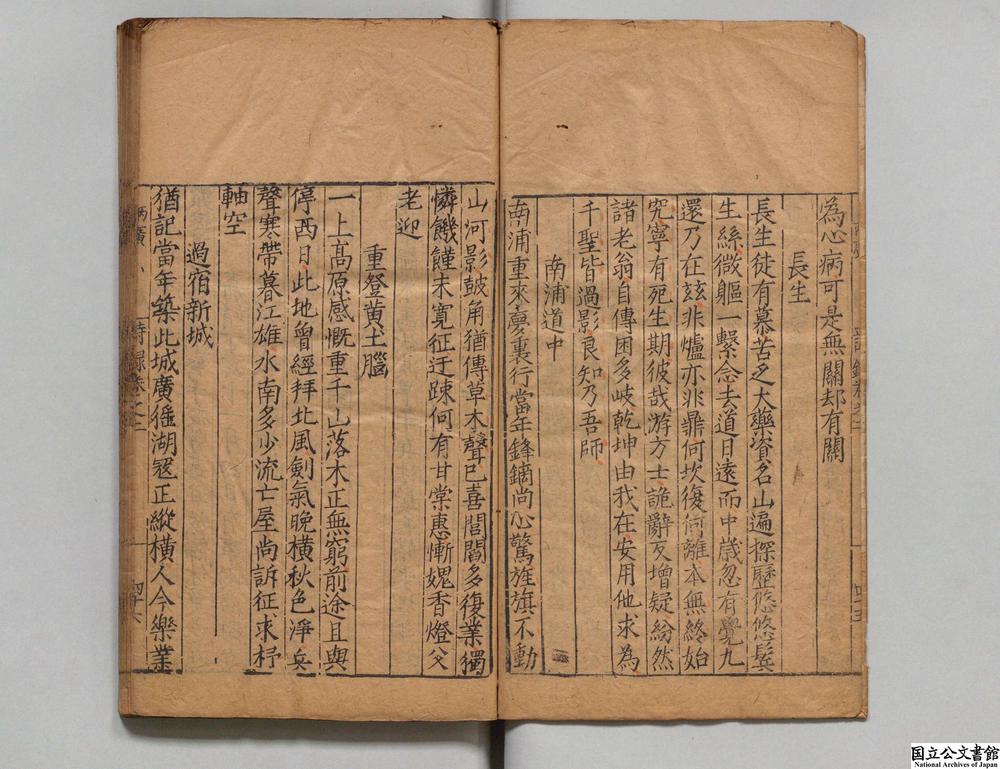 為心病可是無關却有關
長生
長生徒有慕苦乏大藥資名山遍探歷悠悠鬓
生絲微軀一繫念去道日遠而中歲忽有覺九
還乃在兹非爐亦非鼎何坎復何離本無終始
究寧有死生期彼哉游方士詭辭反增疑紛然
諸老翁自傳困多岐乾坤由我在安用他求為
千聖皆過影良知乃吾師
南浦道中
南浦重來夢裏行當年鋒鏑尚心驚旌旗不動
山河影鼓角猶傳草木聲已喜閭閻多復業獨
憐饑饉未寬征迂踈何有甘棠惠慚媿香燈父
老迎
重登黄土腦
一上高原感慨重千山落木正無窮前途且與
停西日此地曾經拜北風劍氣晚橫秋色淨兵
聲寒帶暮江雄水南多少流亡屋尚訴征求杼
軸空
過宿新城
猶記當年築此城廣猺湖寇正縱橫人今樂業
国立公文書館
National Archives of Japan